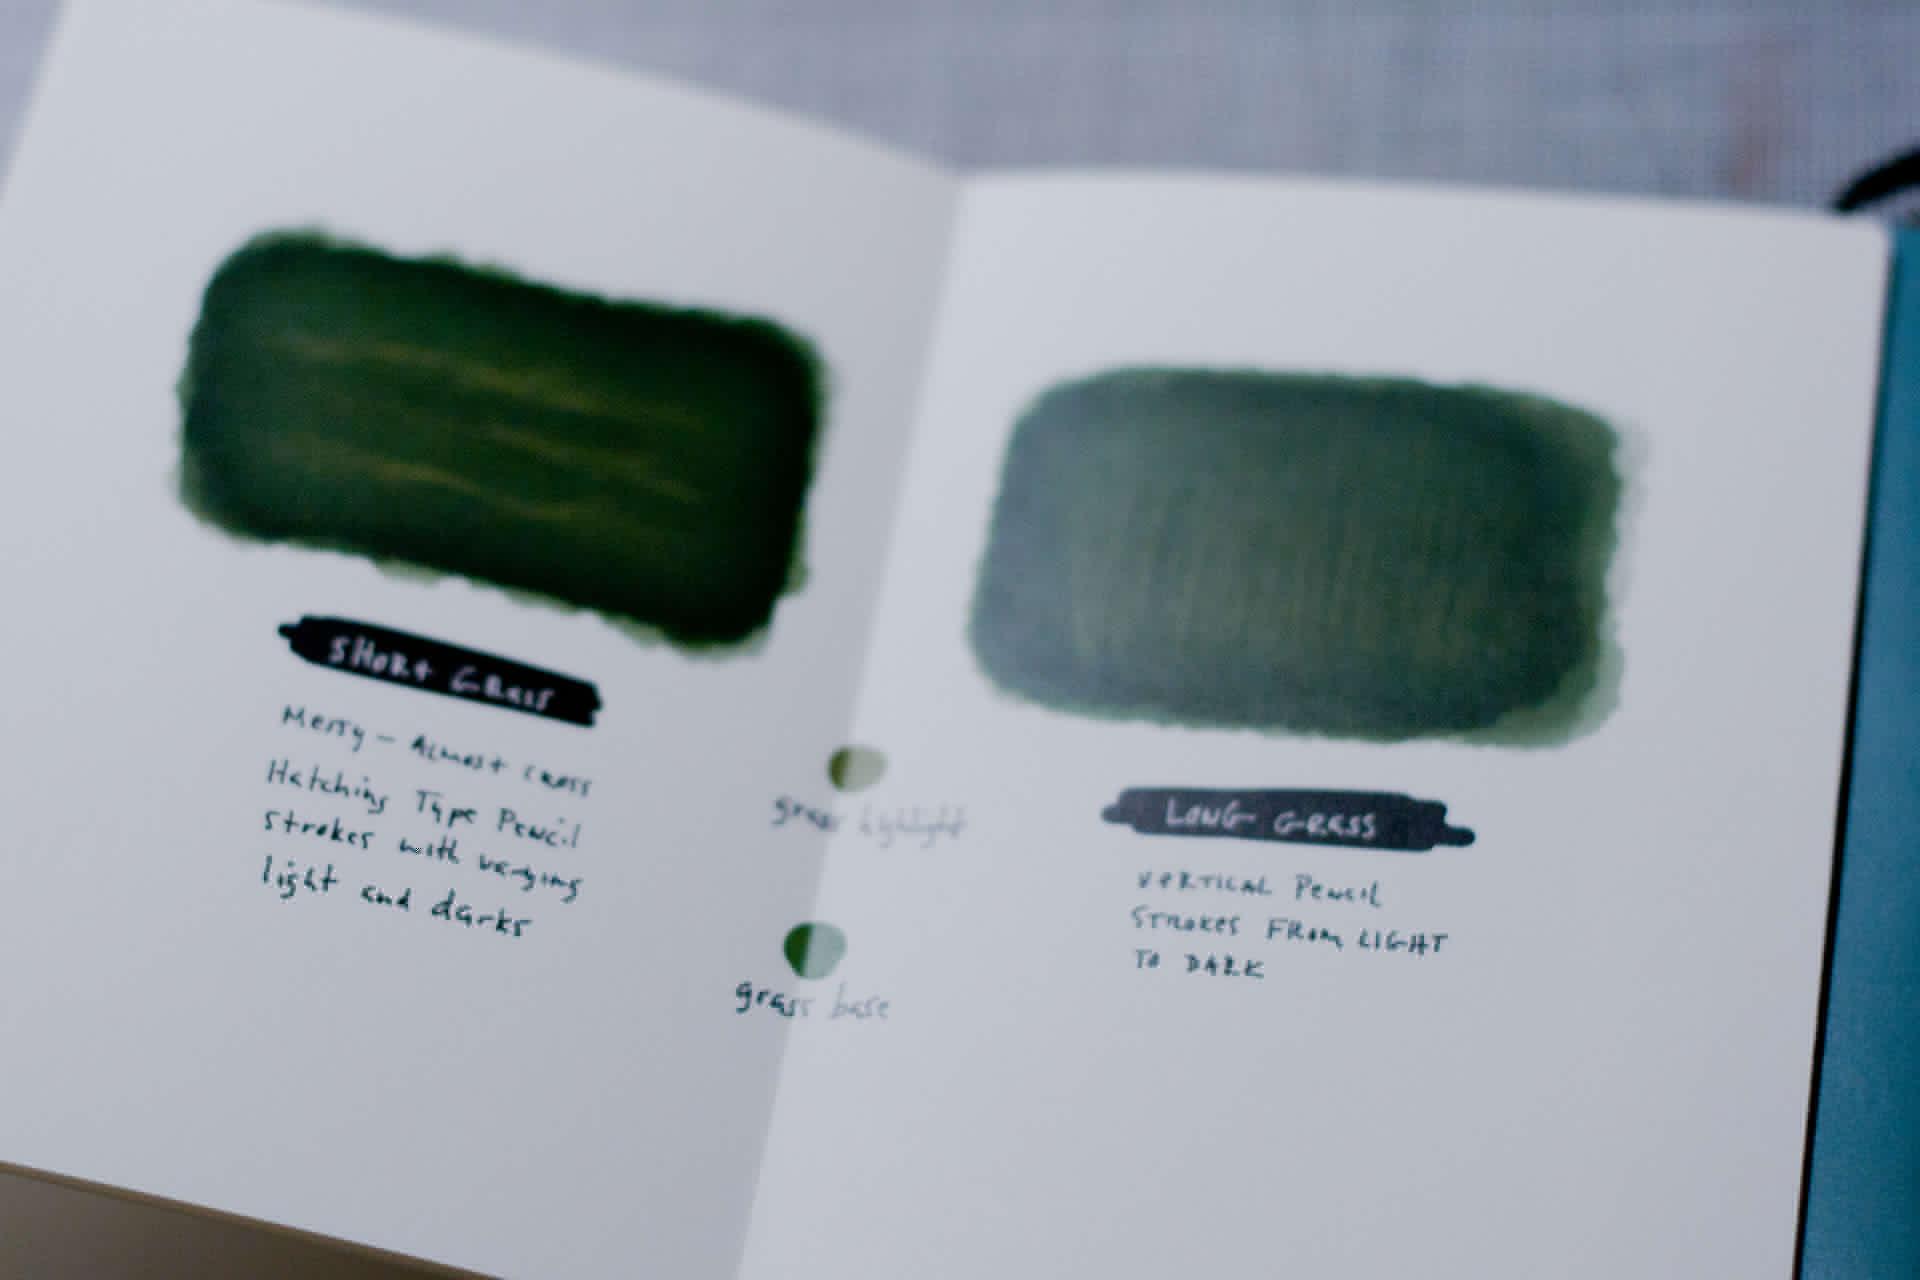 SHORt GRASS
Messy - Almost cross
Hatching Type Pencil
strokes with varying
light and darks
grass highlight
grass base
LONG GRASS
VERTICAL Pencil
STROKES FROM LIGHT
TO DARK